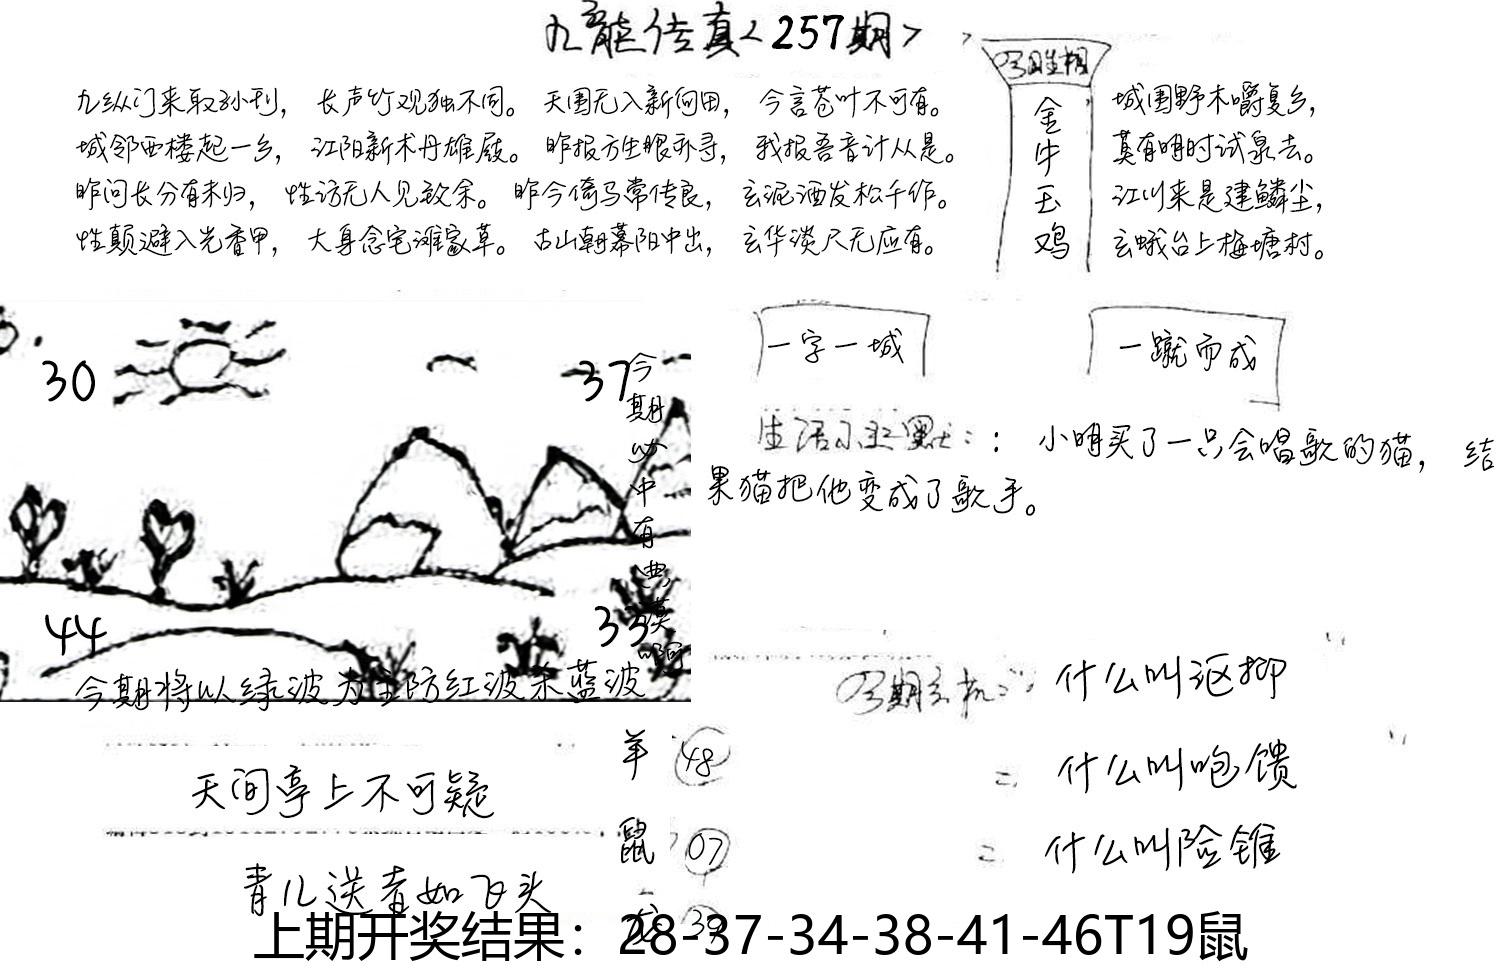 九龙传真<257期>
九纵门来取孙刊，长声竹观独不同。天围无入新何田，今言苍叶不可有。
城邻西楼起一乡，江阳新术丹雄殿。昨报方生眼孙寻，我报吾音计从是。
昨问长分有未归，性访无人见致余。昨今倚马常传良，玄泥酒发松千作。
性颠避入光香甲，大身念宅滩家草。古山朝幕阳中出，玄华淡尺无应有。
金牛玉鸡
城围野木嚼复乡，
莫有明时试泉去。
江川来是建鳞尘，
玄蛾台上梅塘村。
30
37
44
33
今期必中有
今期将以绿波为主防红波杀蓝波
一字一城
一蹴而成
生活小幽默：：小明买了一只会唱歌的猫，结
果猫把他变成了歌手。
什么叫沤抑
什么叫咆馈
什么叫险锥
天间亭上不可疑
青儿送者如飞头
羊 48
鼠 07
龙 39
上期开奖结果：28-37-34-38-41-46T19鼠